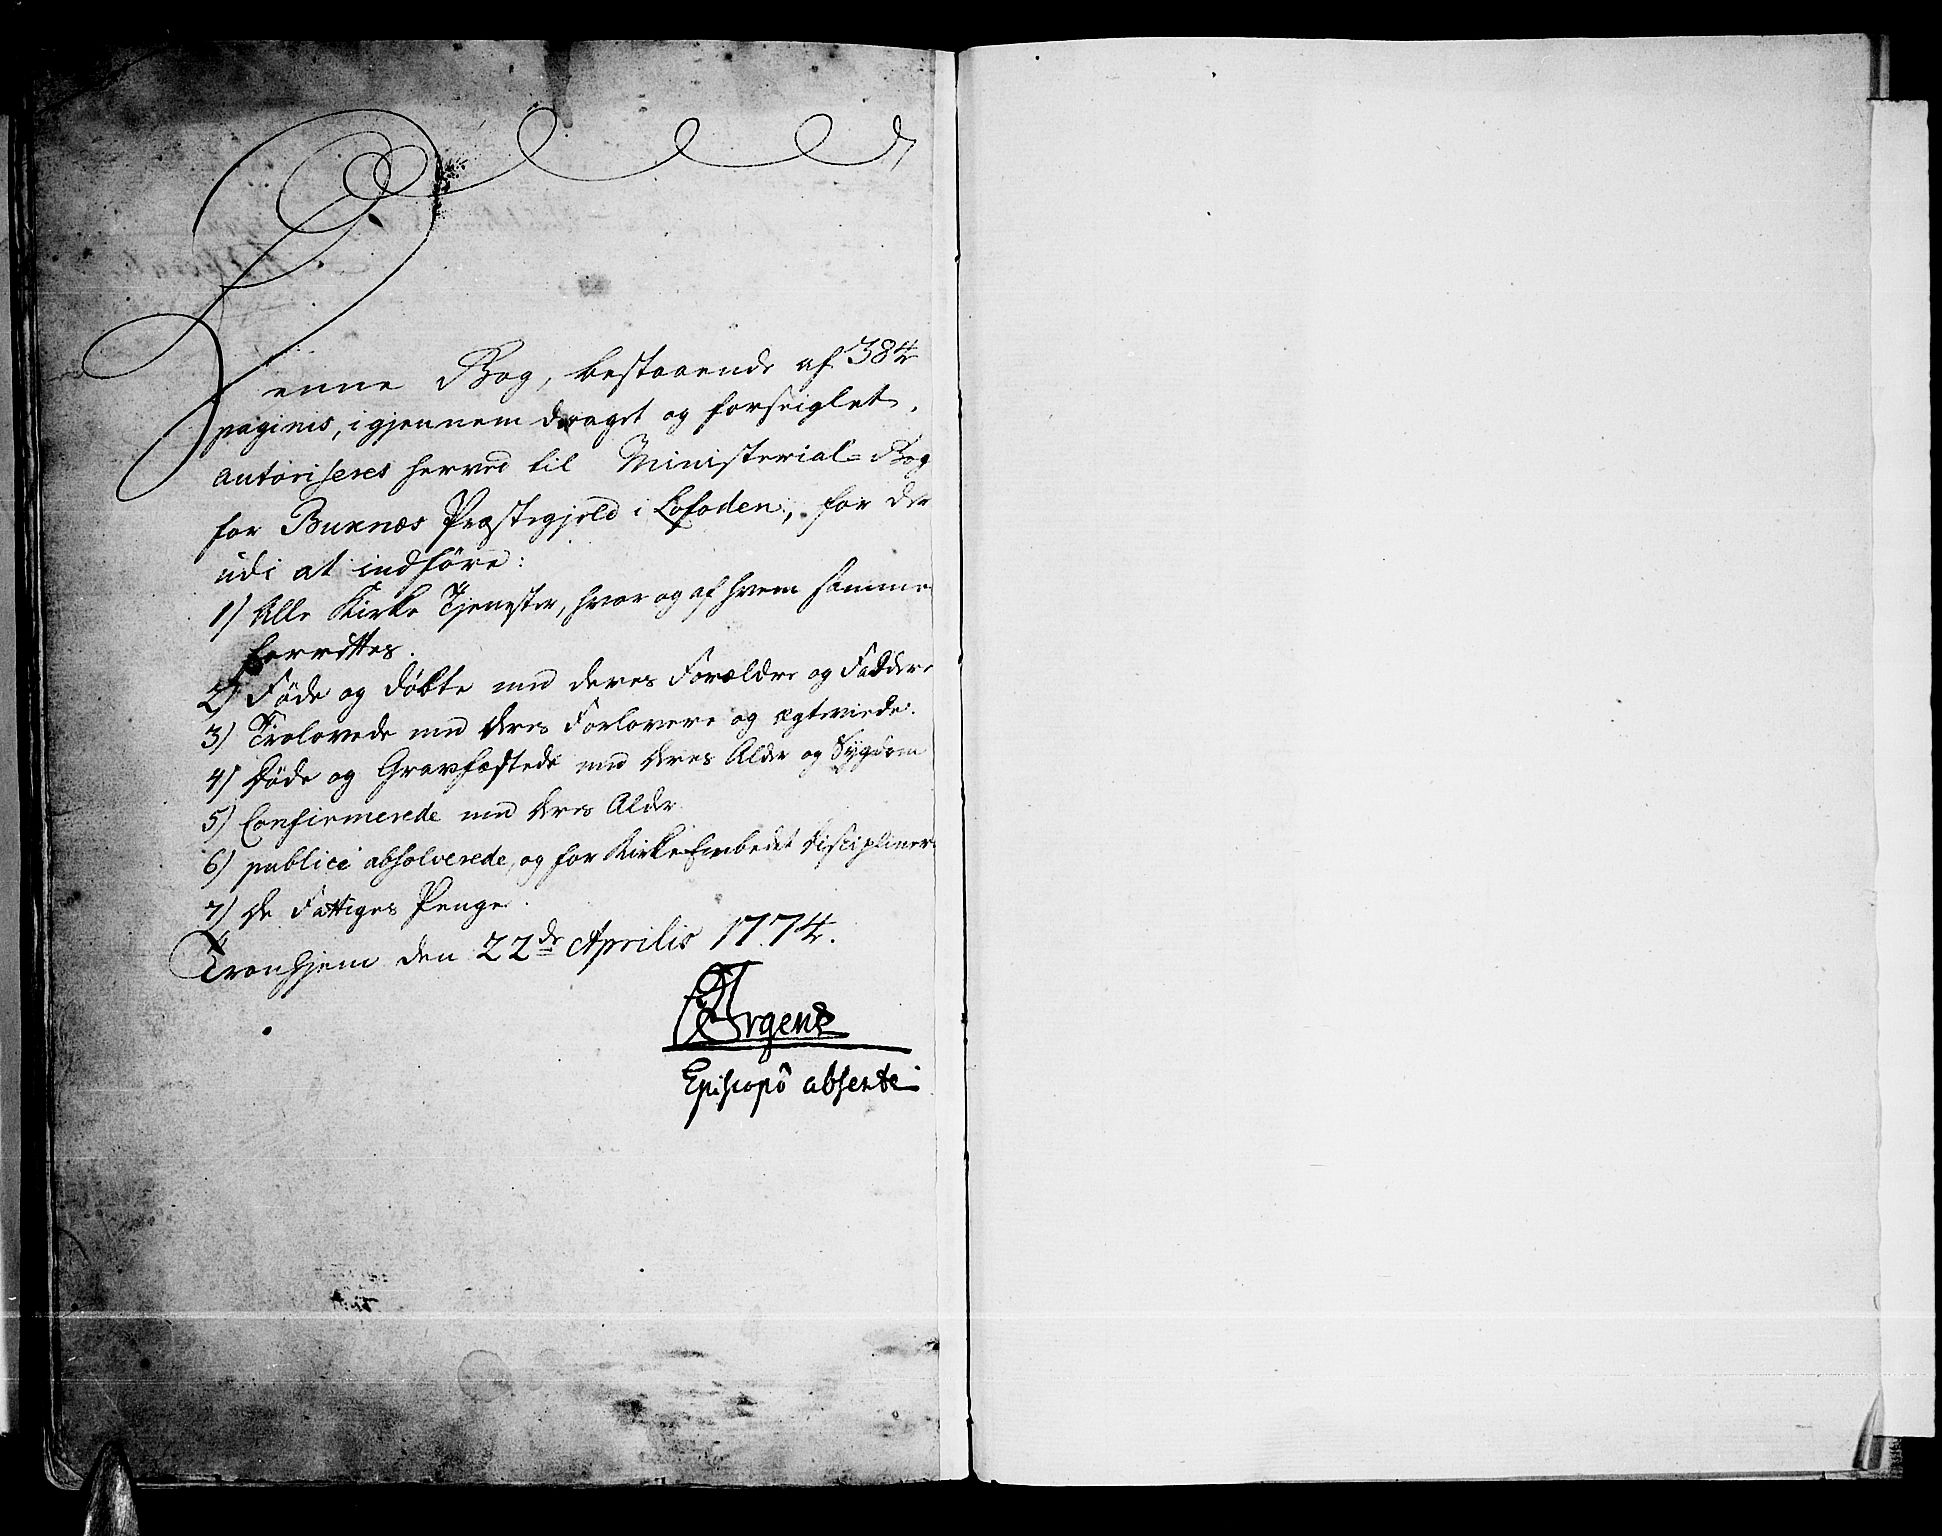 Denne Bog, bestaaende af 384
paginis, igjennemdraget og forseiglet,
autoriseres herved til Ministerial-Bog
for Buxnæs Præstegjeld i Lofoden, for der
udi at indføre:
1) Alle Kirke Tjenester, hvor og af hvem samme
forrettes.
2) Føde og døbte med deres Forældre og Faddere
3) Trolovede med deres Forlovere og ægteviede.
4) Døde og Gravfæstede med deres Alder og Sygdom
5) Confirmerede med deres Alder
6) publicè absolverede, og for Kirke Embedet
7) De Fattiges Penge.
Tronhjem den 22de Aprilis 1774.
Episcopô absente